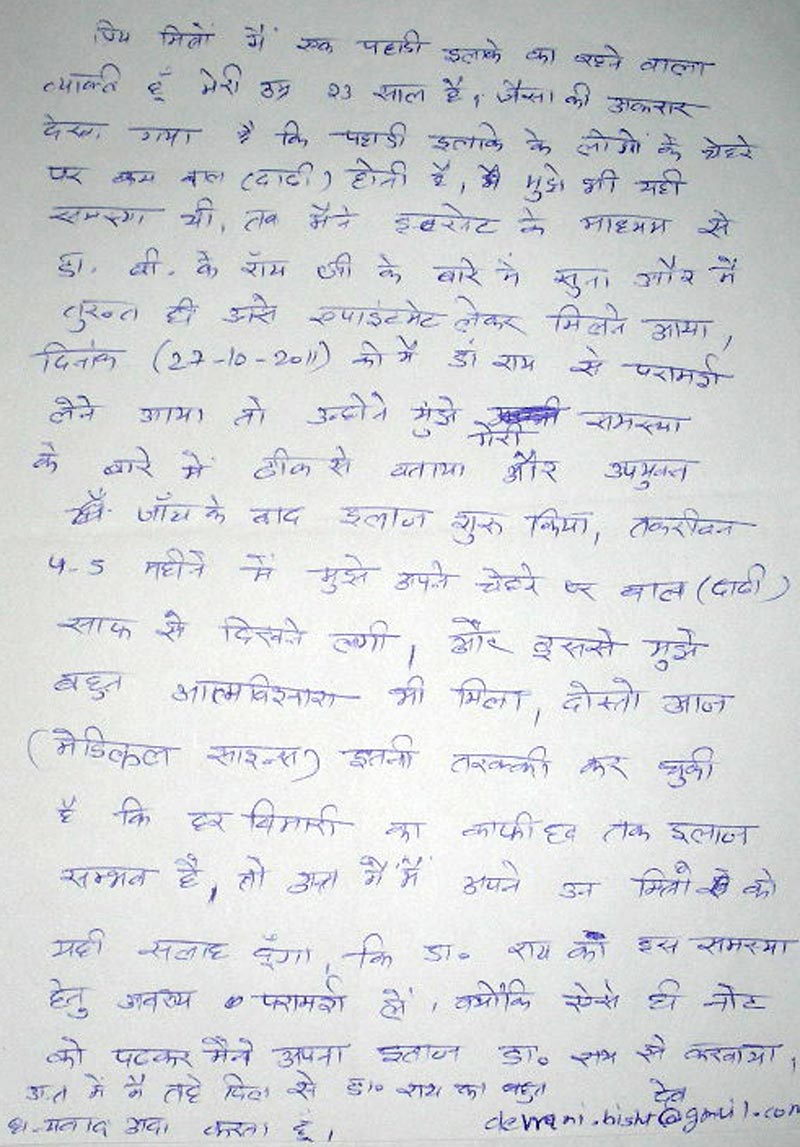 प्रिय मित्रों मैं एक पहाडी इलाके का रहने वाला
व्याक्ती हूँ मेरी उम्र 23 साल है, जैसा की अकसर
देखा गया है कि पहाडी इलाके के लोगों के चेहरे
पर कम बाल (दाढी) होती है, मुझे भी यही
समस्या थी, तब मैने इंटरनेट के माध्यम से
डा. बी. के रॉय जी के बारे में सुना और मैं
तुरन्त ही उनसे एपाइंटमेंट लेकर मिलने आया,
दिनांक (27-10-2011) को मैं डॉ राय से परामर्श
लेने आया तो उन्होने मुझे मेरी समस्या
के बारे में ठीक से बताया और उपयुक्त
जाँच के बाद इलाज शुरू किया, तकरीबन
4-5 महीने में मुझे अपने चेहरे पर बाल (दाढी)
साफ से दिखने लगी, और इससे मुझे
बहुत आत्मविश्वास भी मिला, दोस्तो आज
(मेडिकल साइन्स) इतनी तरक्की कर चुकी
है कि हर बिमारी का काफी हद तक इलाज
सम्भव है, तो अन्त में मैं अपने उन मित्रों को
यही सलाह दूँगा, कि डा. राय को इस समस्या
हेतु अवश्य परामर्श लें, क्योंकि ऐसे ही नोट
को पढकर मैने अपना इलाज डा. राय से करवाया,
अन्त में मैं तहे दिल से डा. राय का बहुत
धन्यवाद अदा करता हूं,
देव
dewani.bisht@gmail.com